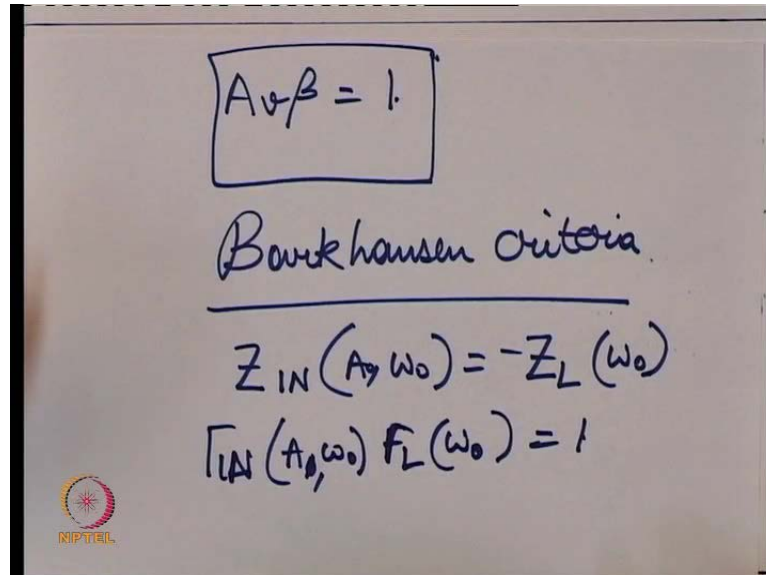 A_v β = 1.
Barkhausen criteria.
Z_IN (A_0, ω_0) = -Z_L (ω_0)
Γ_IN (A_0, ω_0) Γ_L (ω_0) = 1
NPTEL